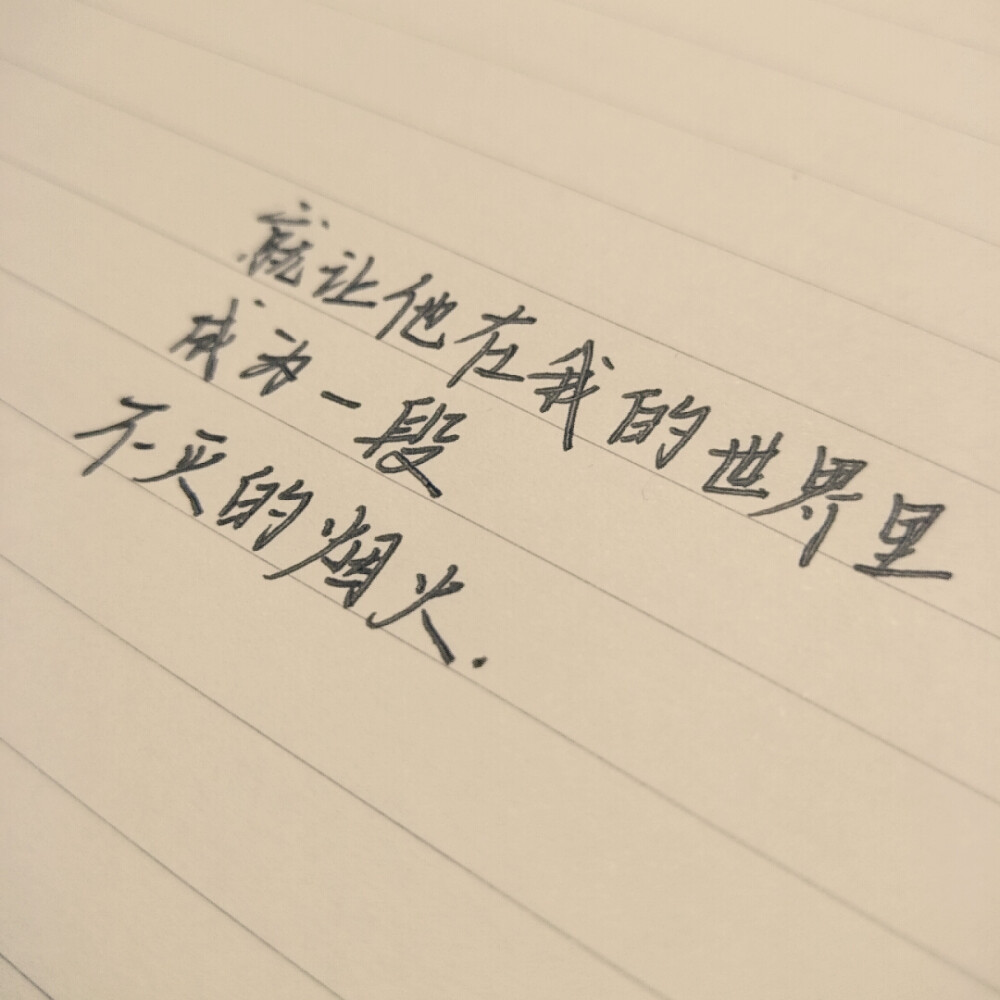 就让他在我的世界里
成为一段
不灭的烟火.